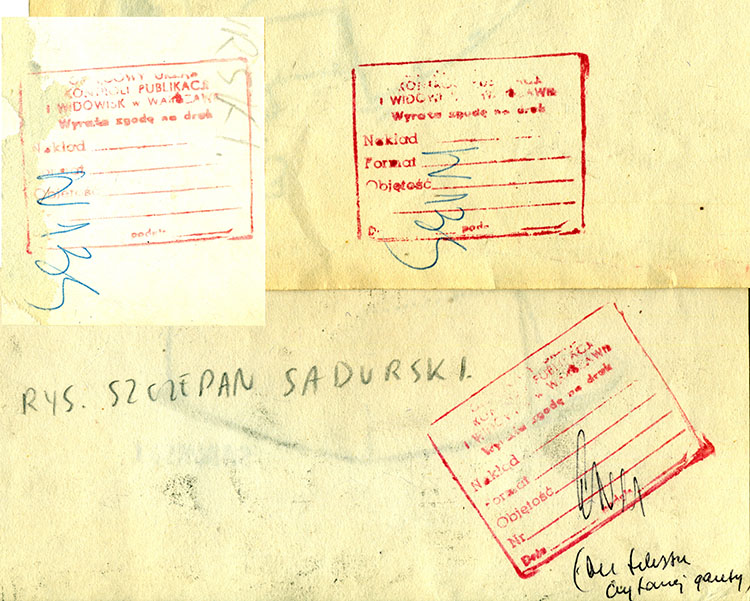 URSKI.
OKRĘGOWY URZĄD
KONTROLI PUBLIKACJI
I WIDOWISK w WARSZAWIE
Wyraża zgodę na druk
Nakład
Format
Objętość
podpis
KONTROLI PUBLIKACJI
I WIDOWISK w WARSZAWIE
Wyraża zgodę na druk
Nakład
Format
Objętość
D podp
RYS. SZCZEPAN SADURSKI.
KONTROLI PUBLIKACJI
I WIDOWISK w WARSZAWIE
Wyraża zgodę na druk
Nakład
Format
Objętość
Nr
Data